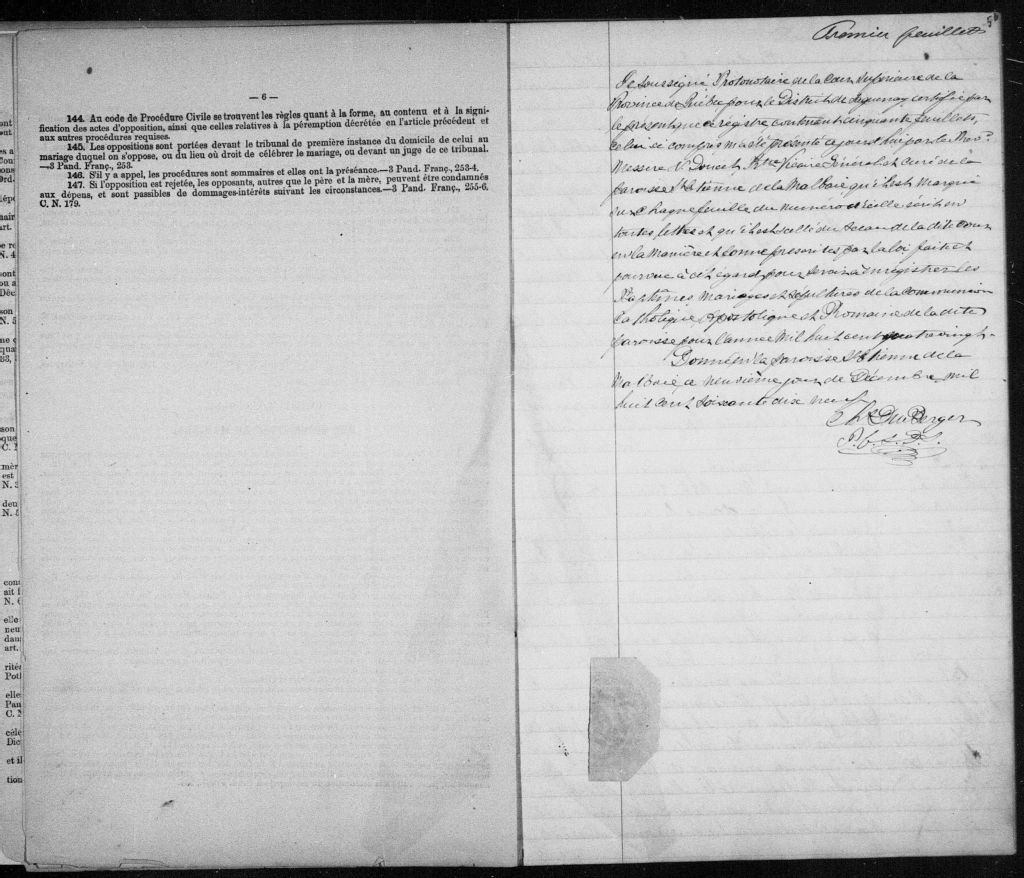 — 6 —
144. Au code de Procédure Civile se trouvent les règles quant à la forme, au contenu et à la signi-
fication des actes d'opposition, ainsi que celles relatives à la péremption décrétée en l'article précédent et
aux autres procédures requises.
145. Les oppositions sont portées devant le tribunal de première instance du domicile de celui au
mariage duquel on s'oppose, ou du lieu où droit de célébrer le mariage, ou devant un juge de ce tribunal.
—3 Pand. Franç., 253.
146. S'il y a appel, les procédures sont sommaires et elles ont la préséance.—3 Pand. Franç., 253-4.
147. Si l'opposition est rejetée, les opposants, autres que le père et la mère, peuvent être condamnés
aux dépens, et sont passibles de dommages-intérêts suivant les circonstances.—3 Pand. Franç., 255-6.
C. N. 179.
Premier feuillet
Je soussigné Protonotaire de la Cour Supérieure de la
Province de Québec pour le District de Saguenay certifie que
le présent registre contenant cinquante feuillets,
celui ci compris m'a été présenté aujourd'hui par le Rév.
Messire N. Doucet Ptre Vicaire Général et curé de la
paroisse St Etienne de la Malbaie qu'il est marqué
sur chaque feuille du numéro d'icelle écrit en
toutes lettres et qu'il est scellé du sceau de la dite Cour
en la manière et forme prescrites par la loi faite et
pourvue à cet égard, pour servir à enregistrer les
Baptêmes mariages et sépultures de la communion
Catholique Apostolique et Romaine de la dite
paroisse pour l'année mil huit cent quatre vingt.
Donné en la paroisse St Etienne de la
Malbaie ce neuvième jour de Décembre mil
huit cent soixante dix neuf
Chs Du Berger
P. C. S. D. S.